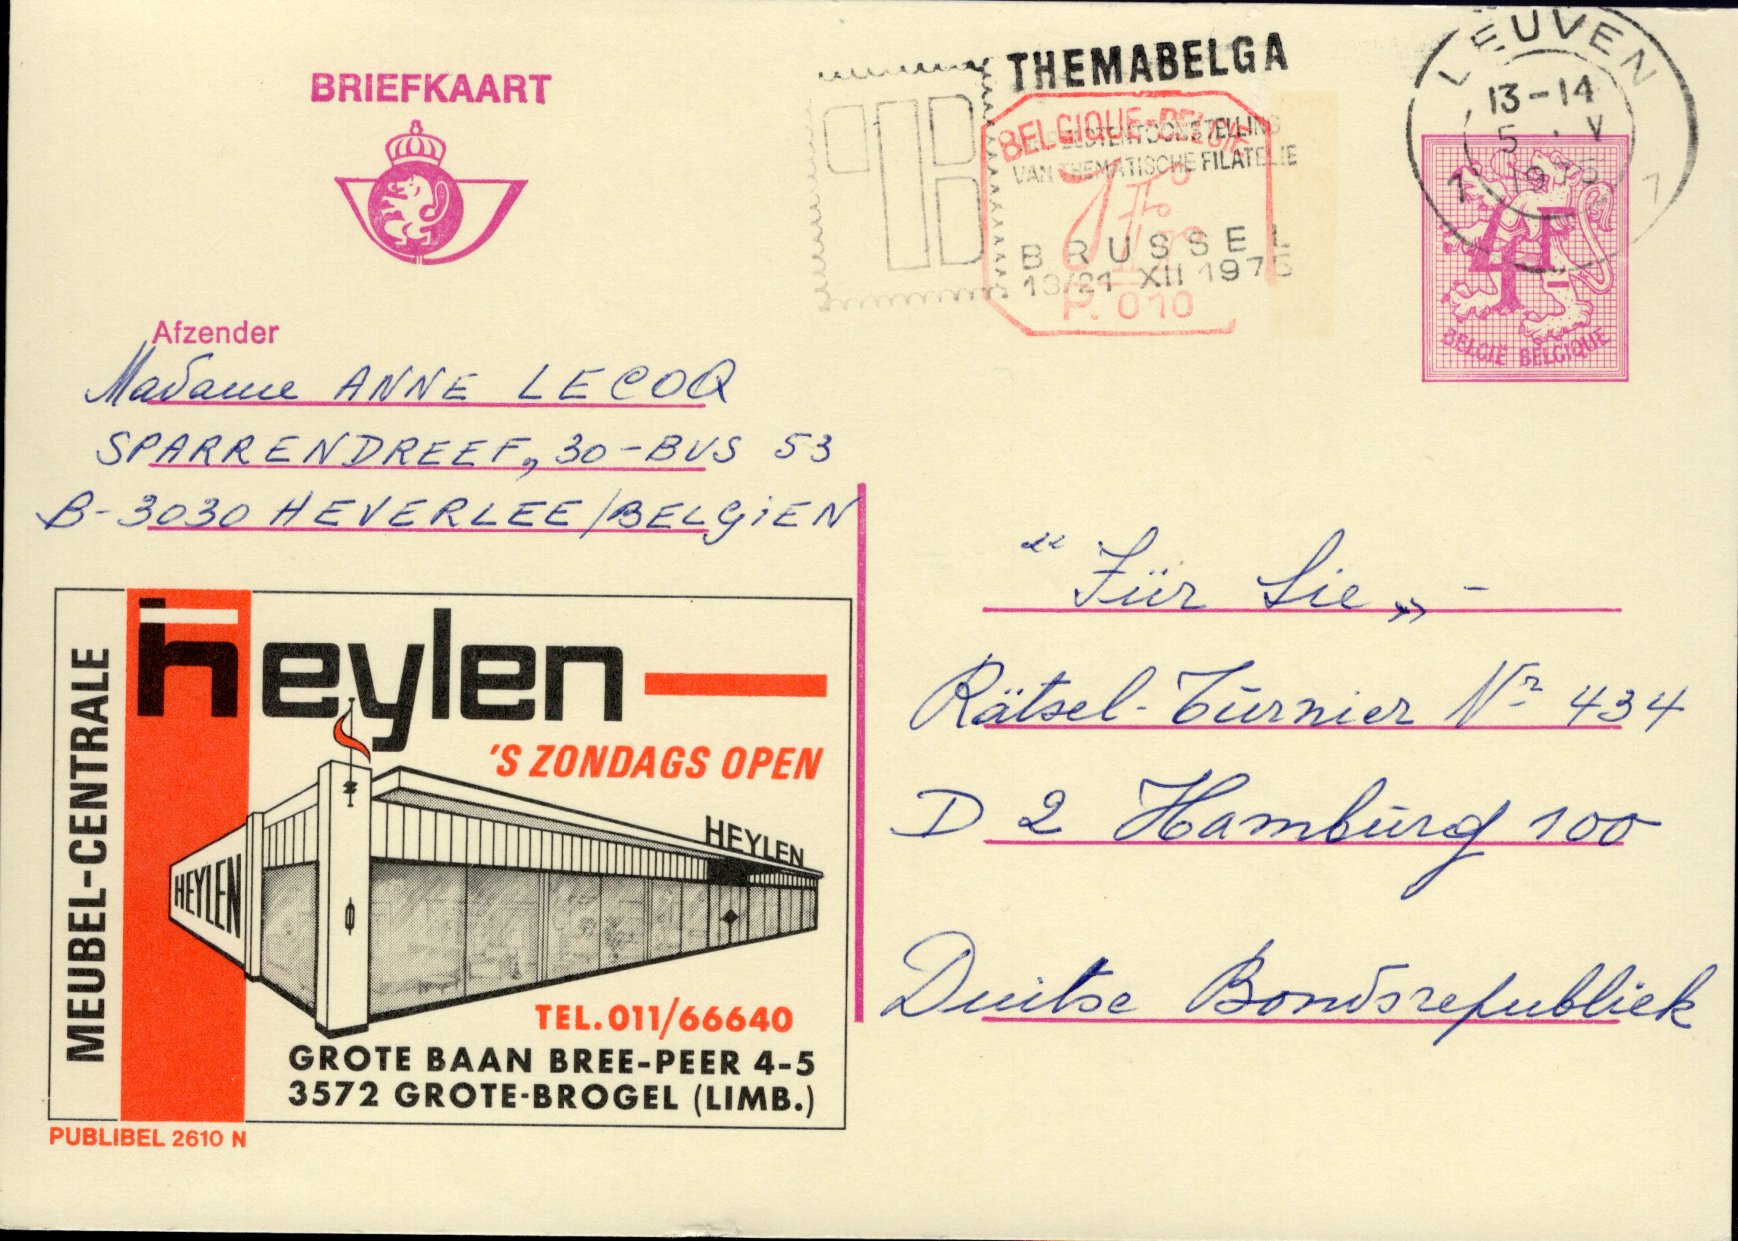 BRIEFKAART
THEMABELGA
VAN THEMATISCHE FILATELIE
BRUSSEL
13/21 XII 1975
BELGIQUE-BELGIE
P.010
LEUVEN
13-14
5 · V
1975
1 1
4F
BELGIË BELGIQUE
Afzender
Madame ANNE LECOQ
SPARRENDREEF, 30-BUS 53
B-3030 HEVERLEE/BELGiEN
MEUBEL-CENTRALE
heylen
'S ZONDAGS OPEN
HEYLEN
HEYLEN
TEL.011/66640
GROTE BAAN BREE-PEER 4-5
3572 GROTE-BROGEL (LIMB.)
PUBLIBEL 2610 N
“Für Sie„ -
Rätsel-Turnier Nr 434
D 2 Hamburg 100
Duitse Bondsrepubliek